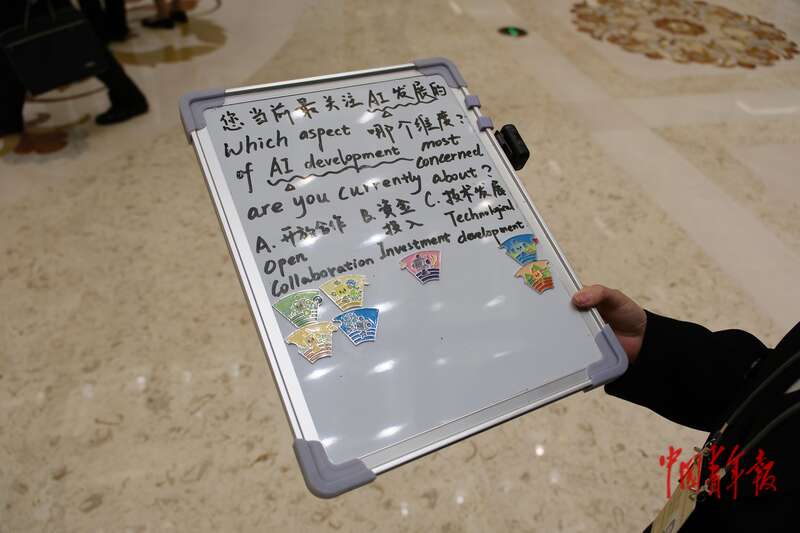 您当前最关注AI发展的
Which aspect 哪个维度?
of AI development most concerned
are you currently about?
A. 开放合作 B. 资金投入 C. 技术发展
Open Collaboration Investment Technological development
中国青年报